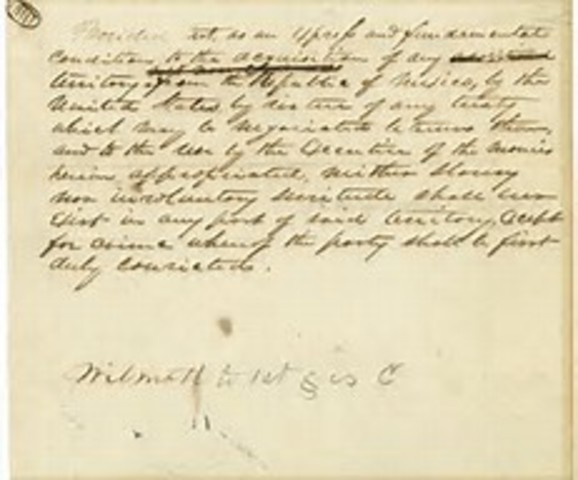 Provided that, as an express and fundamental
condition to the acquisition of any
territory from the Republic of Mexico, by the
United States, by virtue of any treaty
which may be negotiated between them,
and to the use by the Executive of the monies
herein appropriated, neither slavery
nor involuntary servitude shall ever
exist in any part of said territory, except
for crime whereof the party shall be first
duly convicted.
Wilmot to 1st § C